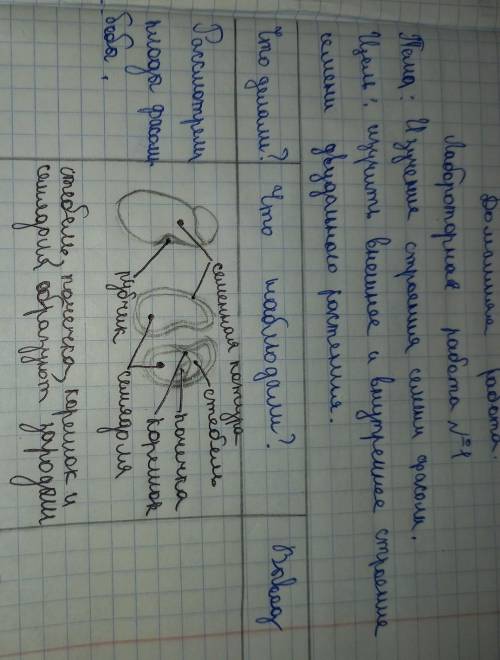 Домашняя работа.
Лабораторная работа №1
Тема: Изучение строения семени фасоли.
Цель: изучить внешнее и внутреннее строение
семени двудольного растения.
Что делали?
Что наблюдали?
Вывод
Рассмотрели
плоды фасоли
боба.
семенная кожура
стебель
почечка
корешок
семядоля
рубчик
стебель, почечка, корешок и
семядоли образуют зародыш